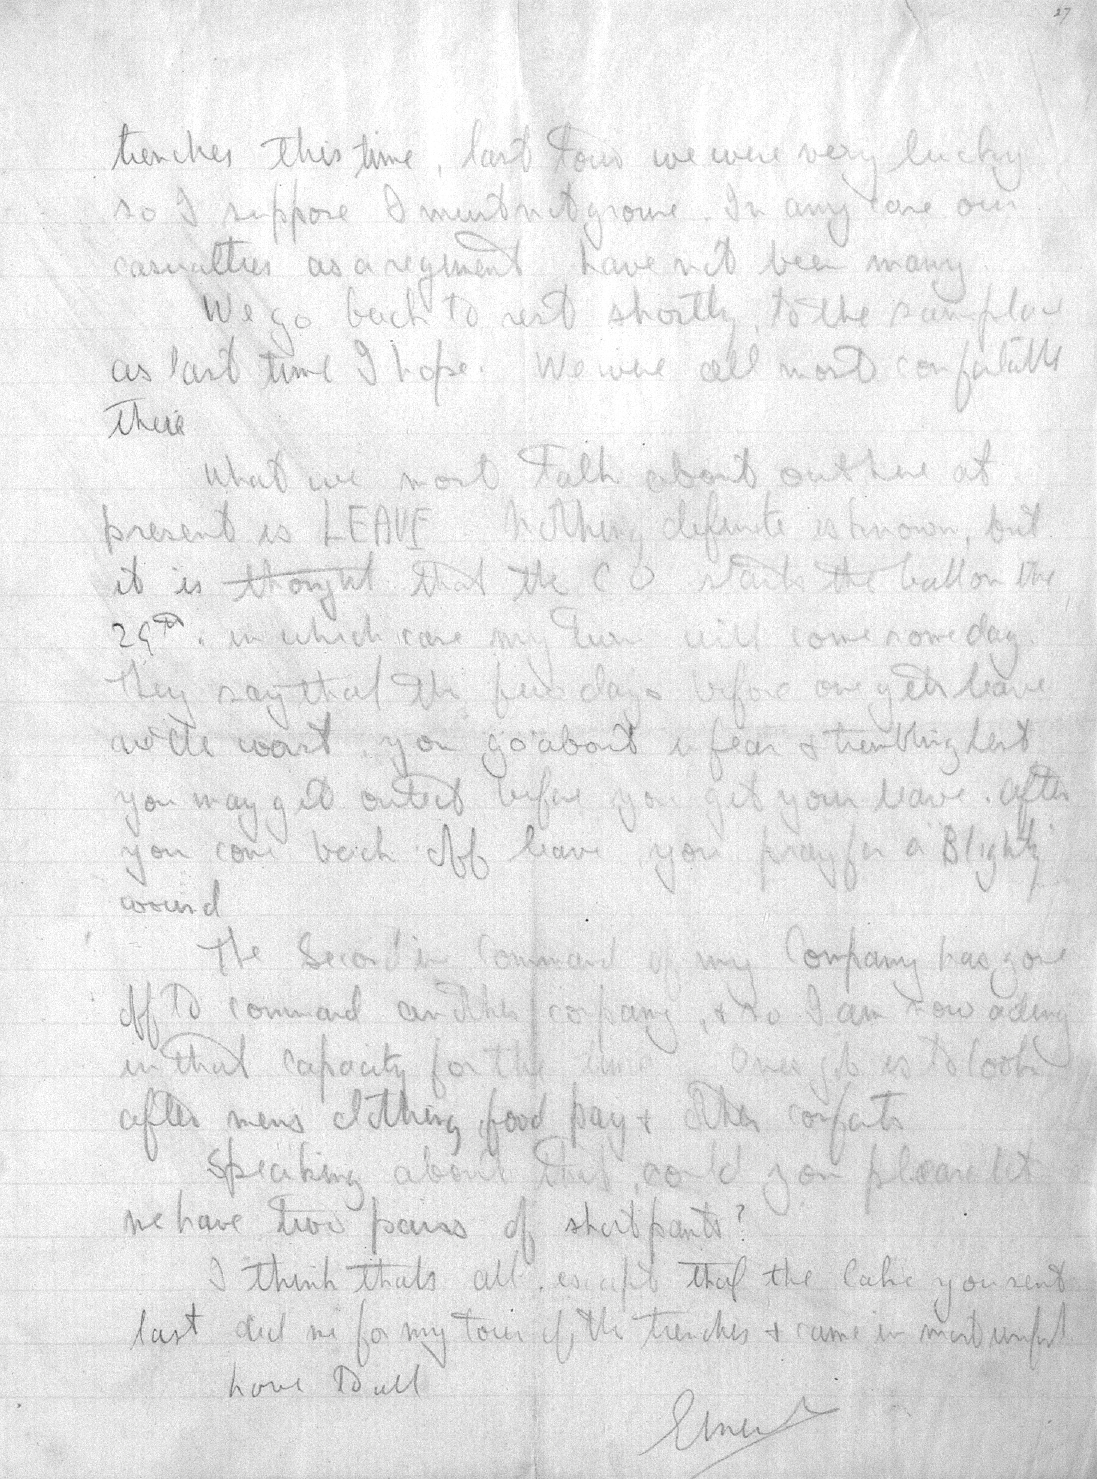 27
trenches this time, last tour we were very lucky
so I suppose I must not grouse. In any case our
casualties as a regiment have not been many.
We go back to rest shortly, to the same place
as last time I hope. We were all most comfortable
there
What we most talk about out here at
present is LEAVE. Nothing definite is known, but
it is thought that the CO starts the ball on the
29th. in which case my turn will come some day.
They say that the few days before one gets leave
are the worst, you go about in fear & trembling lest
you may get outed before you get your leave. After
you come back off leave you pray for a "Blighty"
wound
The Second in Command of my Company has gone
off to command another company, & so I am now acting
in that capacity for the time. Ones job is to look
after mens clothing, food pay & other comforts
Speaking about that, could you please let
me have two pairs of short pants?
I think thats all. except that the cake you sent
last did me for my tour of the trenches & came in most useful
Love to all
Ernest